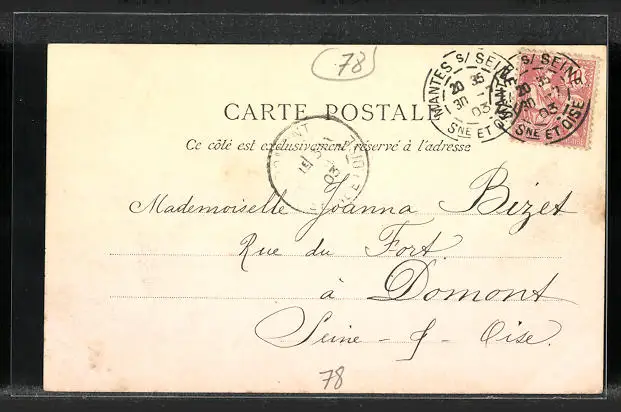 78
MANTES S/ SEINE
20 35
30 -7
03
SNE ET OISE
MANTES S/ SEINE
20 35
30 -7
03
SNE ET OISE
CARTE POSTALE
Ce côté est exclusivement réservé à l'adresse
03
Mademoiselle Joanna Bizet
Rue du Fort
à Domont
Seine - & - Oise.
78